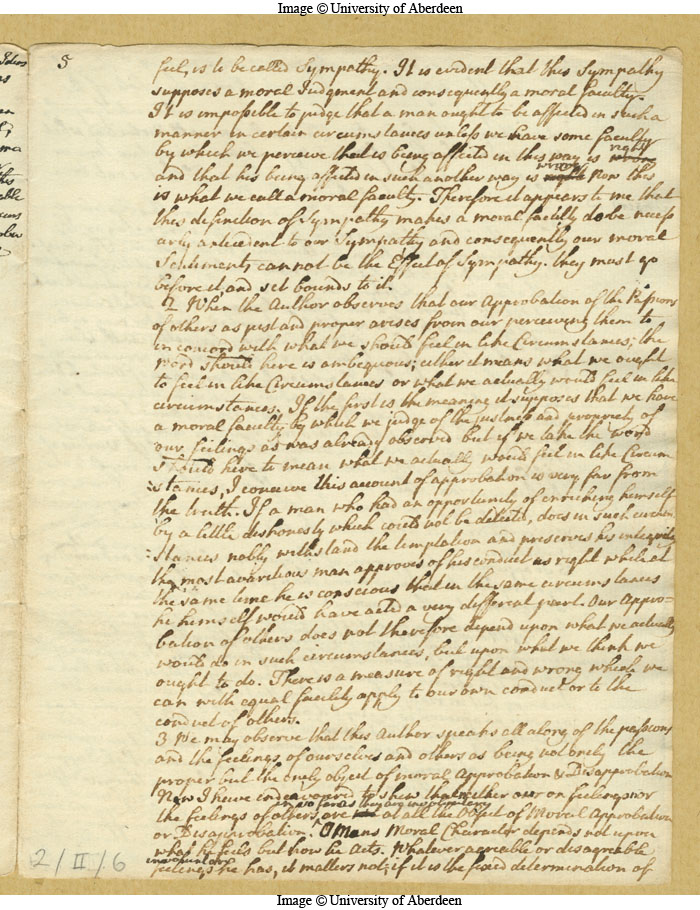 Image © University of Aberdeen
5
feel, is to be called Sympathy. It is evident that this Sympathy
supposes a moral Judgment and consequently a moral faculty.
It is impossible to judge that a man ought to be affected in such a
manner in certain circumstances unless we have some faculty
right
by which we perceive that is being affected in this way is wrong
wrong
and that his being affected in such another way is right Now this
is what we call a moral faculty. Therefore it appears to me that
this definition of Sympathy makes a moral faculty to be necess
arly antecedent to our Sympathy and consequently our moral
Sentiments cannot be the Effect of Sympathy. they must go
before it, and set bounds to it.
2 When the Author observes that our Approbation of the Passions
of others as just and proper arises from our perceiving them to
in concord with what we should feel in like Circumstances; the
word should here is ambiguous; either it means what we ought
to feel in like Circumstances or what we actually would feel in like
circumstances. If the first is the meaning it supposes that we have
a moral faculty by which we judge of the justness and propriety of
our feelings as was already observed but if we take the word
should here to mean what we actually would feel in like Circum
stances, I conceive this account of approbation is very far from
the truth. If a man who had an opportunity of enriching himself
by a little dishonesty which could not be detected, does in such circum
stances nobly withstand the temptation and preserves his integrity
the most avaritious man approves of his conduct as right while at
the same time he is conscious that in the same circumstances
he himself would have acted a very different part. Our Appro=
bation of others does not therefore depend upon what we actually
would do in such circumstances, but upon what we think we
ought to do. There is a measure of right and wrong which we
can with equal facility apply to our own conduct or to the
conduct of others.
3 We may observe that this Author speaks all along of the passions
and the feelings of ourselves and others as being not onely the
proper but the onely object of moral Approbation & Disapprobation
Now I have indeavoured to shew that neither our on feelings nor
in so far as they are involuntary
the feelings of others are at all the Object of Moral Approbation
or Disapprobation. A Mans Moral Character depends not upon
what he feels but how he Acts. Whatever agreable or disagreable
involuntary
feelings he has, it matters not; if it is the fixed determination of
2/II/6
Image © University of Aberdeen